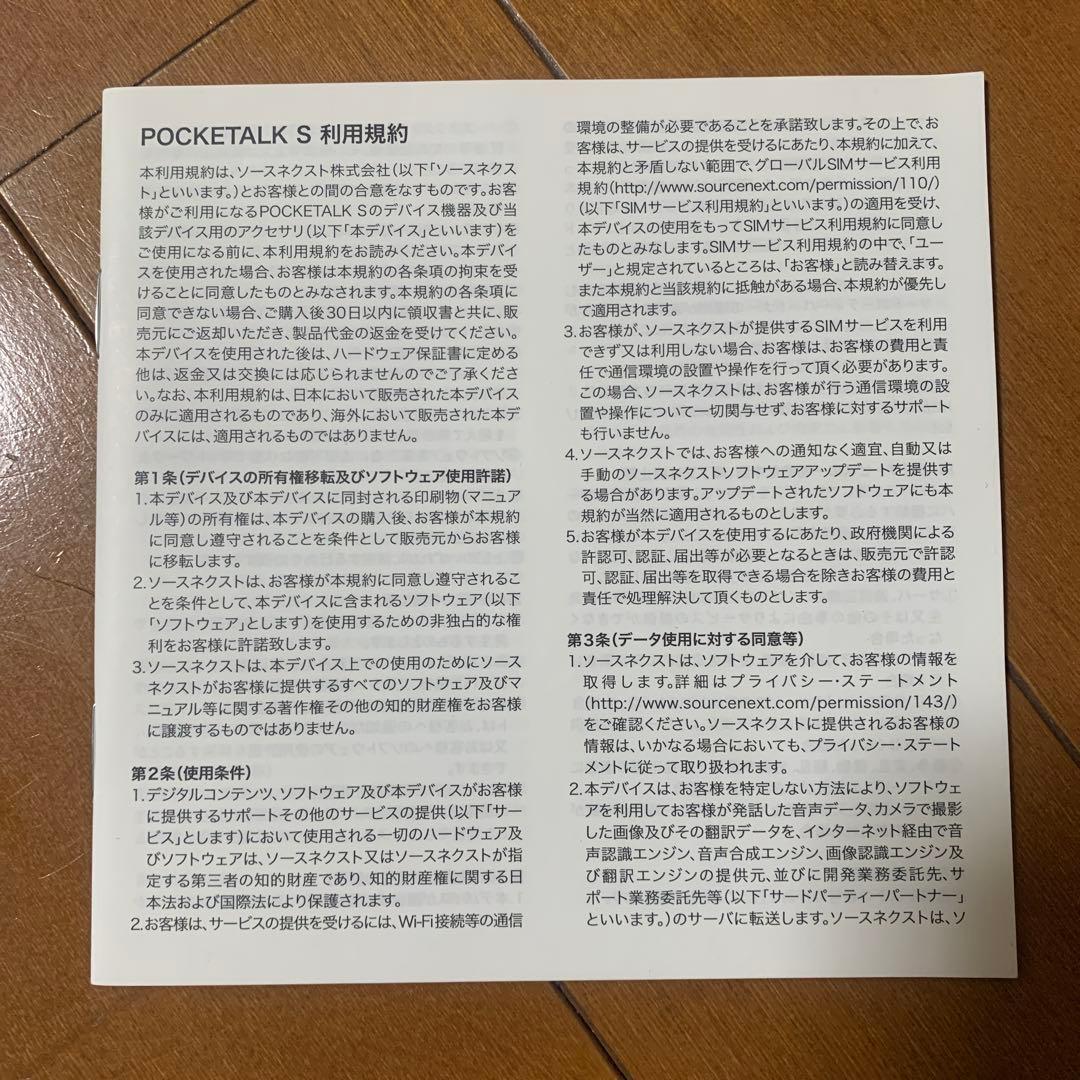 POCKETALK S 利用規約
本利用規約は、ソースネクスト株式会社(以下「ソースネクス
ト」といいます。)とお客様との間の合意をなすものです。お客
様がご利用になるPOCKETALK Sのデバイス機器及び当
該デバイス用のアクセサリ(以下「本デバイス」といいます)を
ご使用になる前に、本利用規約をお読みください。本デバイ
スを使用された場合、お客様は本規約の各条項の拘束を受
けることに同意したものとみなされます。本規約の各条項に
同意できない場合、ご購入後30日以内に領収書と共に、販
売元にご返却いただき、製品代金の返金を受けてください。
本デバイスを使用された後は、ハードウェア保証書に定める
他は、返金又は交換には応じられませんのでご了承くださ
い。なお、本利用規約は、日本において販売された本デバイス
のみに適用されるものであり、海外において販売された本デ
バイスには、適用されるものではありません。
第1条(デバイスの所有権移転及びソフトウェア使用許諾)
1.本デバイス及び本デバイスに同封される印刷物(マニュア
ル等)の所有権は、本デバイスの購入後、お客様が本規約
に同意し遵守されることを条件として販売元からお客様
に移転します。
2.ソースネクストは、お客様が本規約に同意し遵守されるこ
とを条件として、本デバイスに含まれるソフトウェア(以下
「ソフトウェア」とします)を使用するための非独占的な権
利をお客様に許諾致します。
3.ソースネクストは、本デバイス上での使用のためにソース
ネクストがお客様に提供するすべてのソフトウェア及びマ
ニュアル等に関する著作権その他の知的財産権をお客様
に譲渡するものではありません。
第2条(使用条件)
1.デジタルコンテンツ、ソフトウェア及び本デバイスがお客様
に提供するサポートその他のサービスの提供(以下「サー
ビス」とします)において使用される一切のハードウェア及
びソフトウェアは、ソースネクスト又はソースネクストが指
定する第三者の知的財産であり、知的財産権に関する日
本法および国際法により保護されます。
2.お客様は、サービスの提供を受けるには、Wi-Fi接続等の通信
環境の整備が必要であることを承諾致します。その上で、お
客様は、サービスの提供を受けるにあたり、本規約に加えて、
本規約と矛盾しない範囲で、グローバルSIMサービス利用
規約(http://www.sourcenext.com/permission/110/)
(以下「SIMサービス利用規約」といいます。)の適用を受け、
本デバイスの使用をもってSIMサービス利用規約に同意し
たものとみなします。SIMサービス利用規約の中で、「ユー
ザー」と規定されているところは、「お客様」と読み替えます。
また本規約と当該規約に抵触がある場合、本規約が優先し
て適用されます。
3.お客様が、ソースネクストが提供するSIMサービスを利用
できず又は利用しない場合、お客様は、お客様の費用と責
任で通信環境の設置や操作を行って頂く必要があります。
この場合、ソースネクストは、お客様が行う通信環境の設
置や操作について一切関与せず、お客様に対するサポート
も行いません。
4.ソースネクストでは、お客様への通知なく適宜、自動又は
手動のソースネクストソフトウェアアップデートを提供す
る場合があります。アップデートされたソフトウェアにも本
規約が当然に適用されるものとします。
5.お客様が本デバイスを使用するにあたり、政府機関による
許認可、認証、届出等が必要となるときは、販売元で許認
可、認証、届出等を取得できる場合を除きお客様の費用と
責任で処理解決して頂くものとします。
第3条(データ使用に対する同意等)
1.ソースネクストは、ソフトウェアを介して、お客様の情報を
取得します。詳細はプライバシー・ステートメント
(http://www.sourcenext.com/permission/143/)
をご確認ください。ソースネクストに提供されるお客様の
情報は、いかなる場合においても、プライバシー・ステート
メントに従って取り扱われます。
2.本デバイスは、お客様を特定しない方法により、ソフトウェ
アを利用してお客様が発話した音声データ、カメラで撮影
した画像及びその翻訳データを、インターネット経由で音
声認識エンジン、音声合成エンジン、画像認識エンジン及
び翻訳エンジンの提供元、並びに開発業務委託先、サ
ポート業務委託先等(以下「サードパーティーパートナー」
といいます。)のサーバに転送します。ソースネクストは、ソ